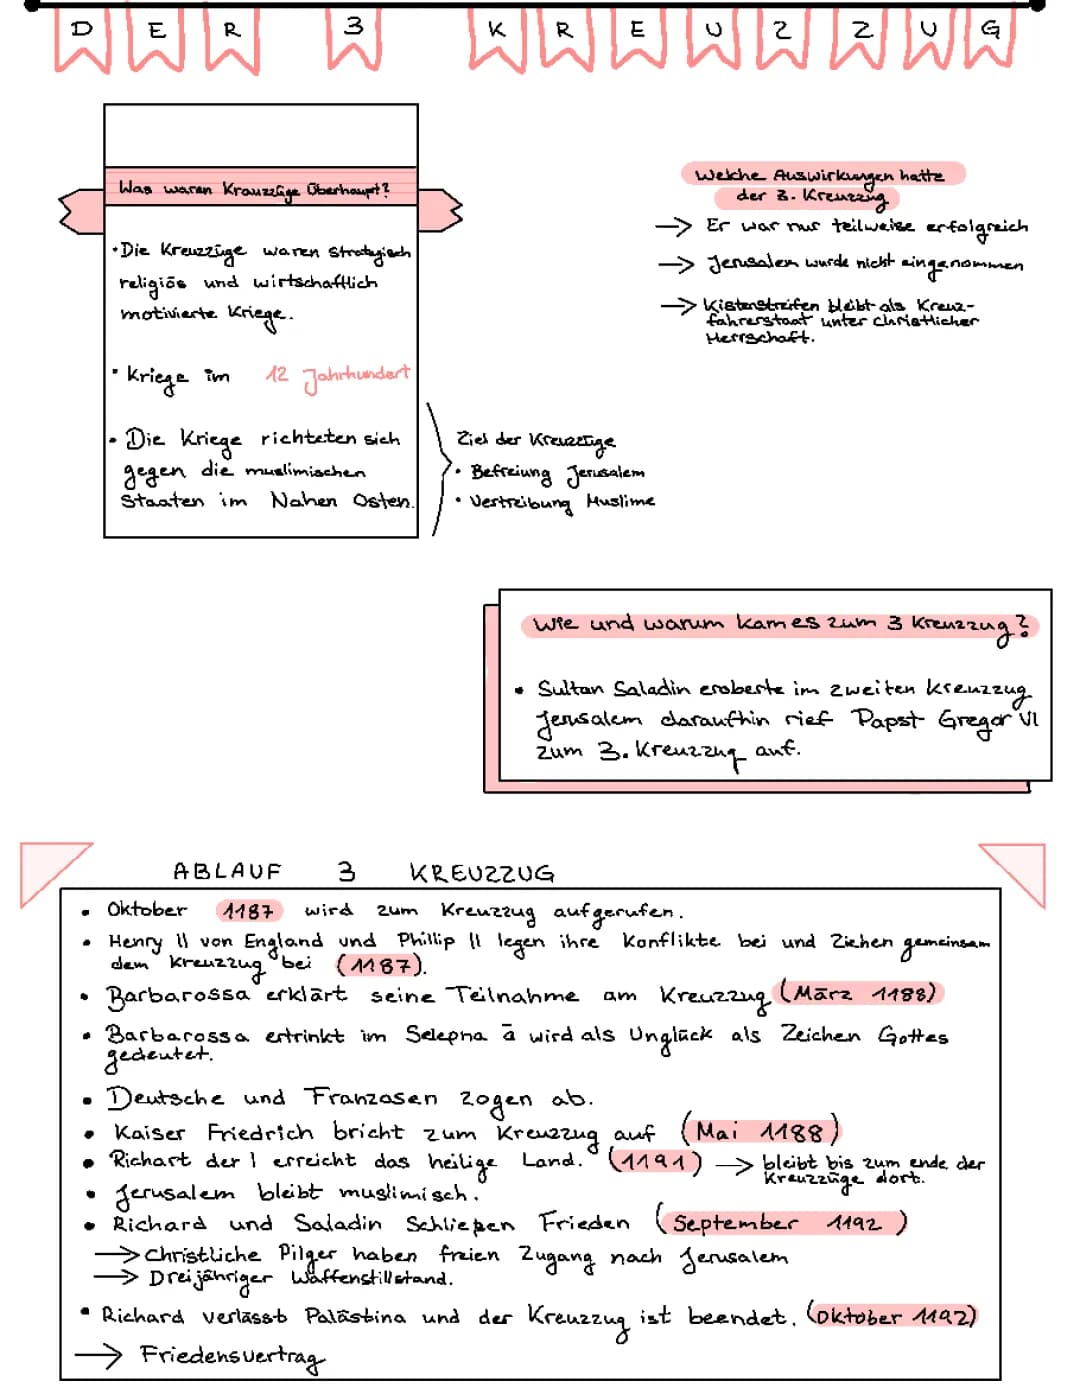 DER 3 KREUZZUG
Was waren Krauzzüge Überhaupt?
• Die Kreuzzüge waren strategisch
religiös und wirtschaftlich
motivierte Kriege.
• Kriege im 12 Jahrhundert
• Die Kriege richteten sich
gegen die muslimischen
Staaten im Nahen Osten.
Ziel der Kreuzzüge
• Befreiung Jerusalem
• Vertreibung Muslime
Welche Auswirkungen hatte
der 3. Kreuzzug
→ Er war nur teilweise erfolgreich
→ Jerusalem wurde nicht eingenommen
→ Küstenstreifen bleibt als Kreuz-
fahrerstaat unter christlicher
Herrschaft.
Wie und warum kam es zum 3 Kreuzzug?
• Sultan Saladin eroberte im zweiten Kreuzzug
Jerusalem daraufhin rief Papst Gregor VI
zum 3. Kreuzzug auf.
ABLAUF 3 KREUZZUG
• Oktober 1187 wird zum Kreuzzug aufgerufen.
• Henry II von England und Phillip II legen ihre Konflikte bei und Ziehen gemeinsam
dem Kreuzzug bei (1187).
• Barbarossa erklärt seine Teilnahme am Kreuzzug (März 1188)
• Barbarossa ertrinkt im Selepna à wird als Unglück als Zeichen Gottes
gedeutet.
• Deutsche und Franzosen zogen ab.
• Kaiser Friedrich bricht zum Kreuzzug auf (Mai 1188)
• Richart der I erreicht das heilige Land. (1191) → bleibt bis zum ende der
Kreuzzüge dort.
• Jerusalem bleibt muslimisch.
• Richard und Saladin Schließen Frieden (September 1192)
→ Christliche Pilger haben freien Zugang nach Jerusalem
→ Dreijähriger Waffenstillstand.
• Richard verlässt Palästina und der Kreuzzug ist beendet. (Oktober 1192)
→ Friedensvertrag